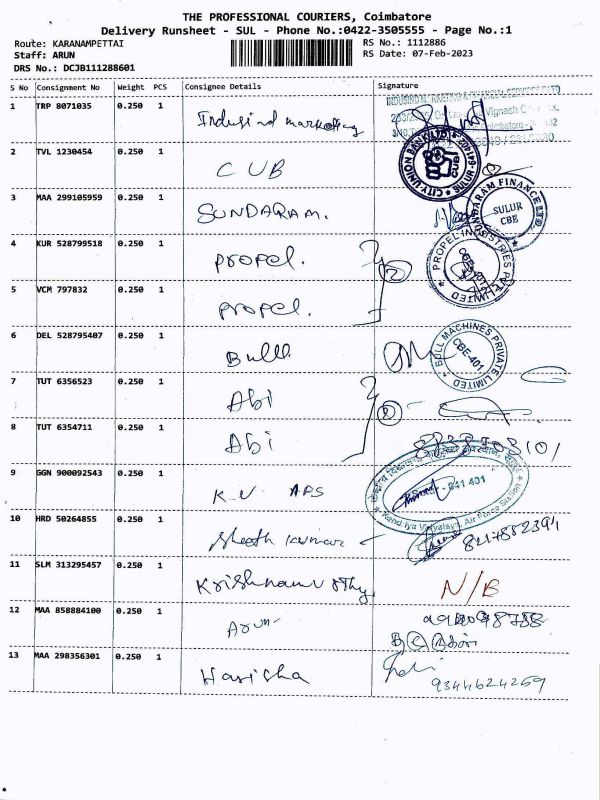 THE PROFESSIONAL COURIERS, Coimbatore
Delivery Runsheet - SUL - Phone No.:0422-3505555 - Page No.:1
Route: KARANAMPETTAI
Staff: ARUN
DRS No.: DCJB111288601
RS No.: 1112886
RS Date: 07-Feb-2023
S No Consignment No Weight PCS Consignee Details Signature
1 TRP 8071035 0.250 1 Indusind marketing
2 TVL 1230454 0.250 1 CUB
CITY UNION BANK LTD. SULUR CUB
3 MAA 299105959 0.250 1 SUNDARAM.
SUNDARAM FINANCE LTD. SULUR CBE
4 KUR 528799518 0.250 1 Propel. 2
PROPEL INDUSTRIES PVT. LIMITED CBE-401
5 VCM 797832 0.250 1 Propel.
6 DEL 528795407 0.250 1 Bull
BULL MACHINES PRIVATE LIMITED CBE-401
7 TUT 6356523 0.250 1 Abi 2
8 TUT 6354711 0.250 1 Abi
9 GGN 900092543 0.250 1 K.V AFS
641 401
Kendriya Vidyalaya, Air Force Station
10 HRD 50264855 0.250 1 kumar
11 SLM 313295457 0.250 1 Krishnamurthy N/B
12 MAA 858884100 0.250 1 Arun
13 MAA 298356301 0.250 1 Harisha
9344624269